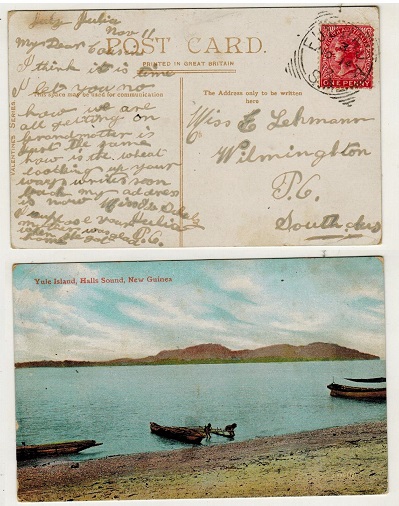 July
Nov 11
My Dear Cousin
POST CARD.
PRINTED IN GREAT BRITAIN
I think it is time
I let you no
This space may be used for communication
how we are
all getting on
grandmother is
just the same
how is the wheat
looking up your
way write soon
my address
is now
P.O.
VALENTINES SERIES
The Address only to be written
here
Miss E Lehmann
Wilmington
P.O.
South Aus
ONE PENNY
Yule Island, Halls Sound, New Guinea